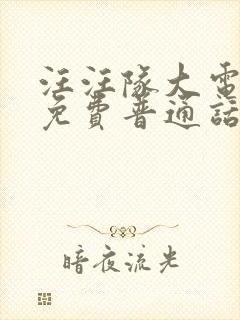 汪汪隊大電
免費普通話
暗夜流光